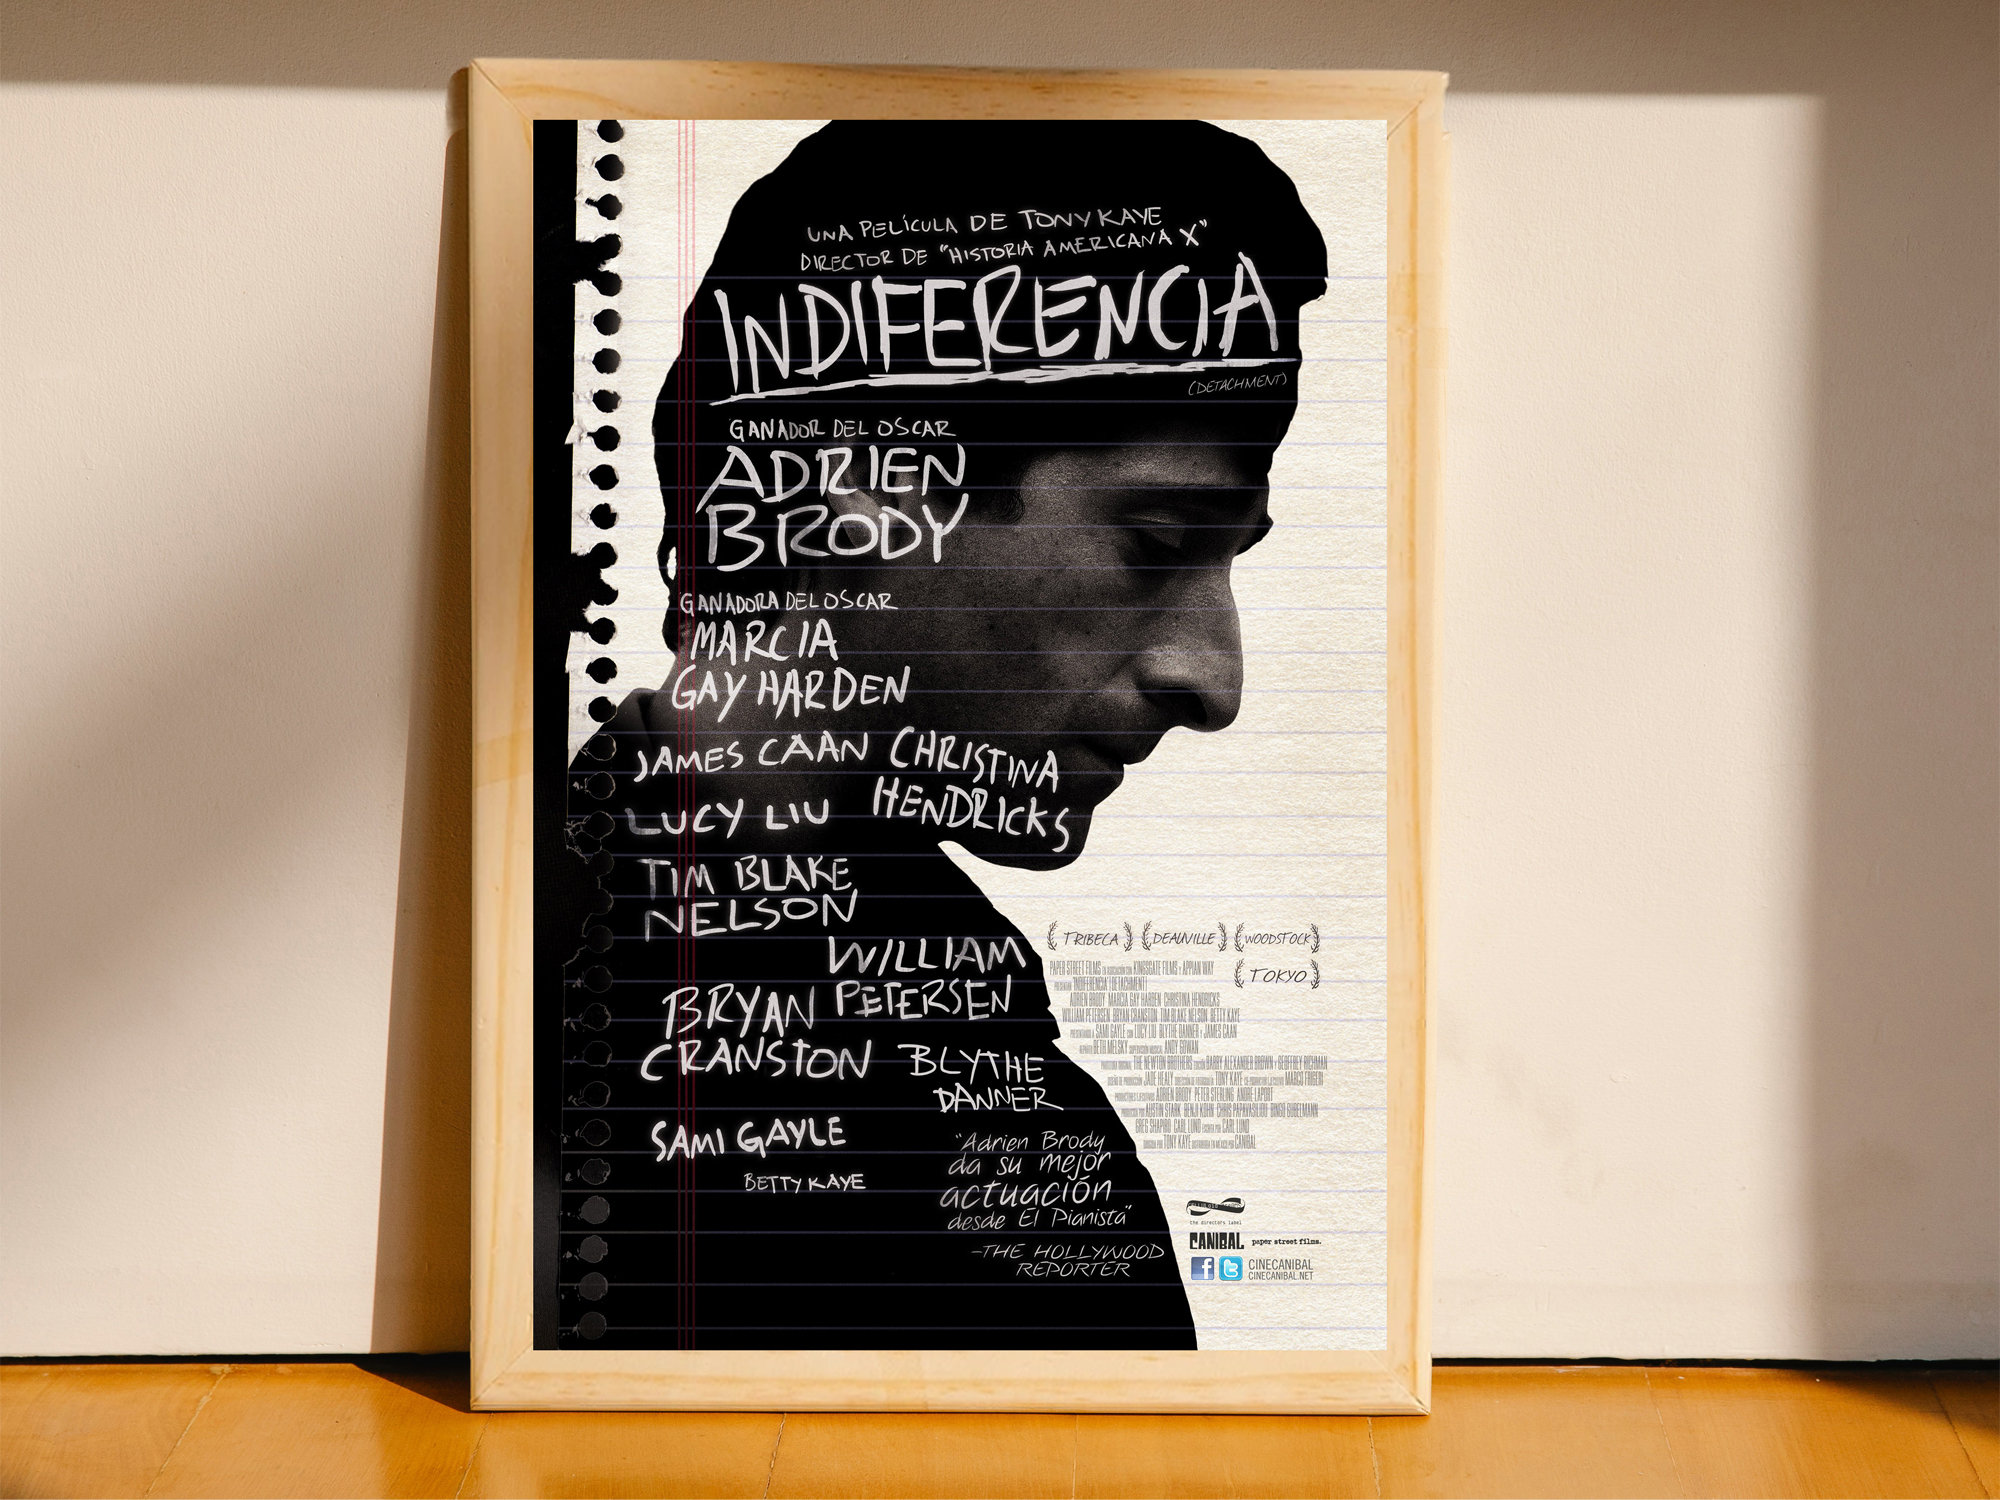 UNA PELÍCULA DE TONY KAYE
DIRECTOR DE "HISTORIA AMERICANA X"
INDIFERENCIA
(DETACHMENT)
GANADOR DEL OSCAR
ADRIEN
BRODY
GANADORA DEL OSCAR
MARCIA
GAY HARDEN
JAMES CAAN
CHRISTINA
HENDRICKS
LUCY LIU
TIM BLAKE
NELSON
WILLIAM
PETERSEN
BRYAN
CRANSTON
BLYTHE
DANNER
SAMI GAYLE
BETTY KAYE
"Adrien Brody
da su mejor
actuación
desde El Pianista"
-THE HOLLYWOOD
REPORTER
TRIBECA
DEAUVILLE
WOODSTOCK
TOKYO
PAPER STREET FILMS EN ASOCIACIÓN CON KINGSGATE FILMS Y APPIAN WAY
PRESENTAN "INDIFERENCIA" (DETACHMENT)
ADRIEN BRODY MARCIA GAY HARDEN CHRISTINA HENDRICKS
WILLIAM PETERSEN BRYAN CRANSTON TIM BLAKE NELSON BETTY KAYE
PRESENTANDO A SAMI GAYLE CON LUCY LIU BLYTHE DANNER Y JAMES CAAN
REPARTO BETH MELSKY SUPERVISIÓN MUSICAL ANDY GOWAN
THE NEWTON BROTHERS EDICIÓN BARRY ALEXANDER BROWN Y GEOFFREY RICHMAN
DISEÑO DE PRODUCCIÓN JADE HEALY DIRECCIÓN DE FOTOGRAFÍA TONY KAYE MARCO FRIGERI
PRODUCTORES EJECUTIVOS ADRIEN BRODY PETER STERLING ANDRE LAPORT
PRODUCIDA POR AUSTIN STARK BENJI KOHN CHRIS PAPAVASILIOU BINGO GUBELMANN
GREG SHAPIRO CARL LUND ESCRITA POR CARL LUND
DIRIGIDA POR TONY KAYE DISTRIBUIDA EN MÉXICO POR CANIBAL
the directors label
CANIBAL
paper street films.
CINECANIBAL
CINECANIBAL.NET